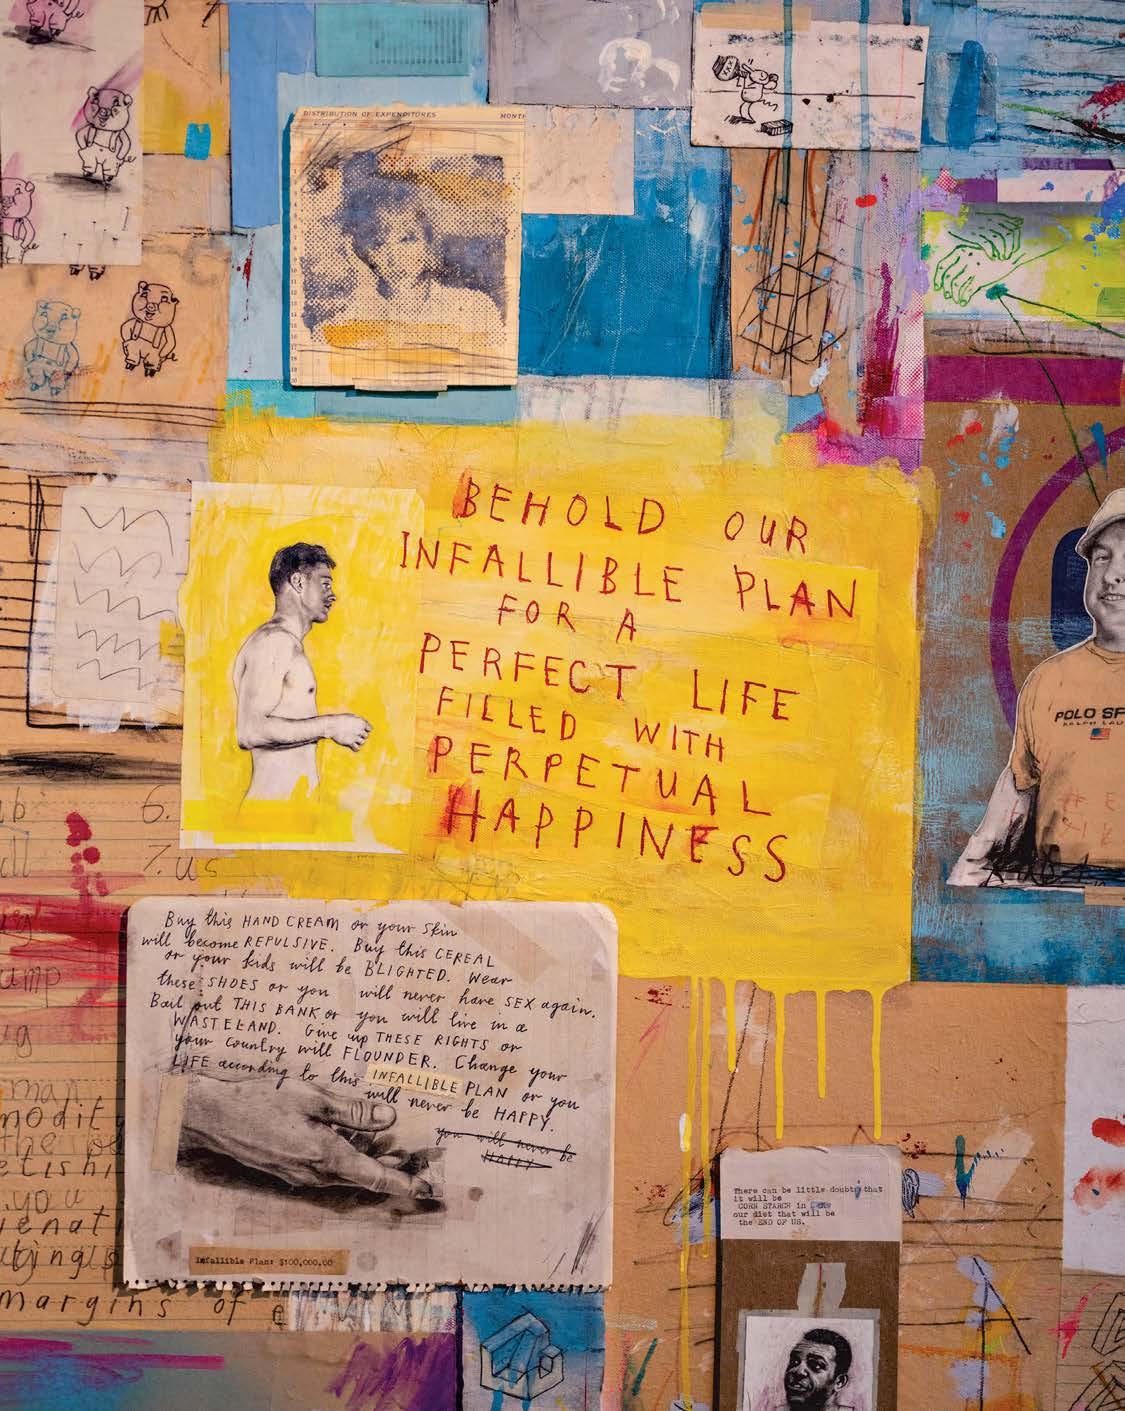 DISTRIBUTION OF EXPENDITURES
MONTH
BEHOLD OUR
INFALLIBLE PLAN
FOR A
PERFECT LIFE
FILLED WITH
PERPETUAL
HAPPINESS
POLO SP
6.
7. us
Buy this HAND CREAM or your skin
will become REPULSIVE. Buy this CEREAL
or your kids will be BLIGHTED. Wear
these SHOES or you will never have SEX again.
Bail out THIS BANK or you will live in a
WASTELAND. Give up THESE RIGHTS or
your Country will FLOUNDER. Change your
LIFE according to this INFALLIBLE PLAN or you
will never be HAPPY.
you will never be
HAPPY
Infallible Plan: $100,000.00
man
modit
the
etishi
you
ienati
margins of e
There can be little doubt that
it will be
CORN STARCH in
our diet that will be
the END OF US.